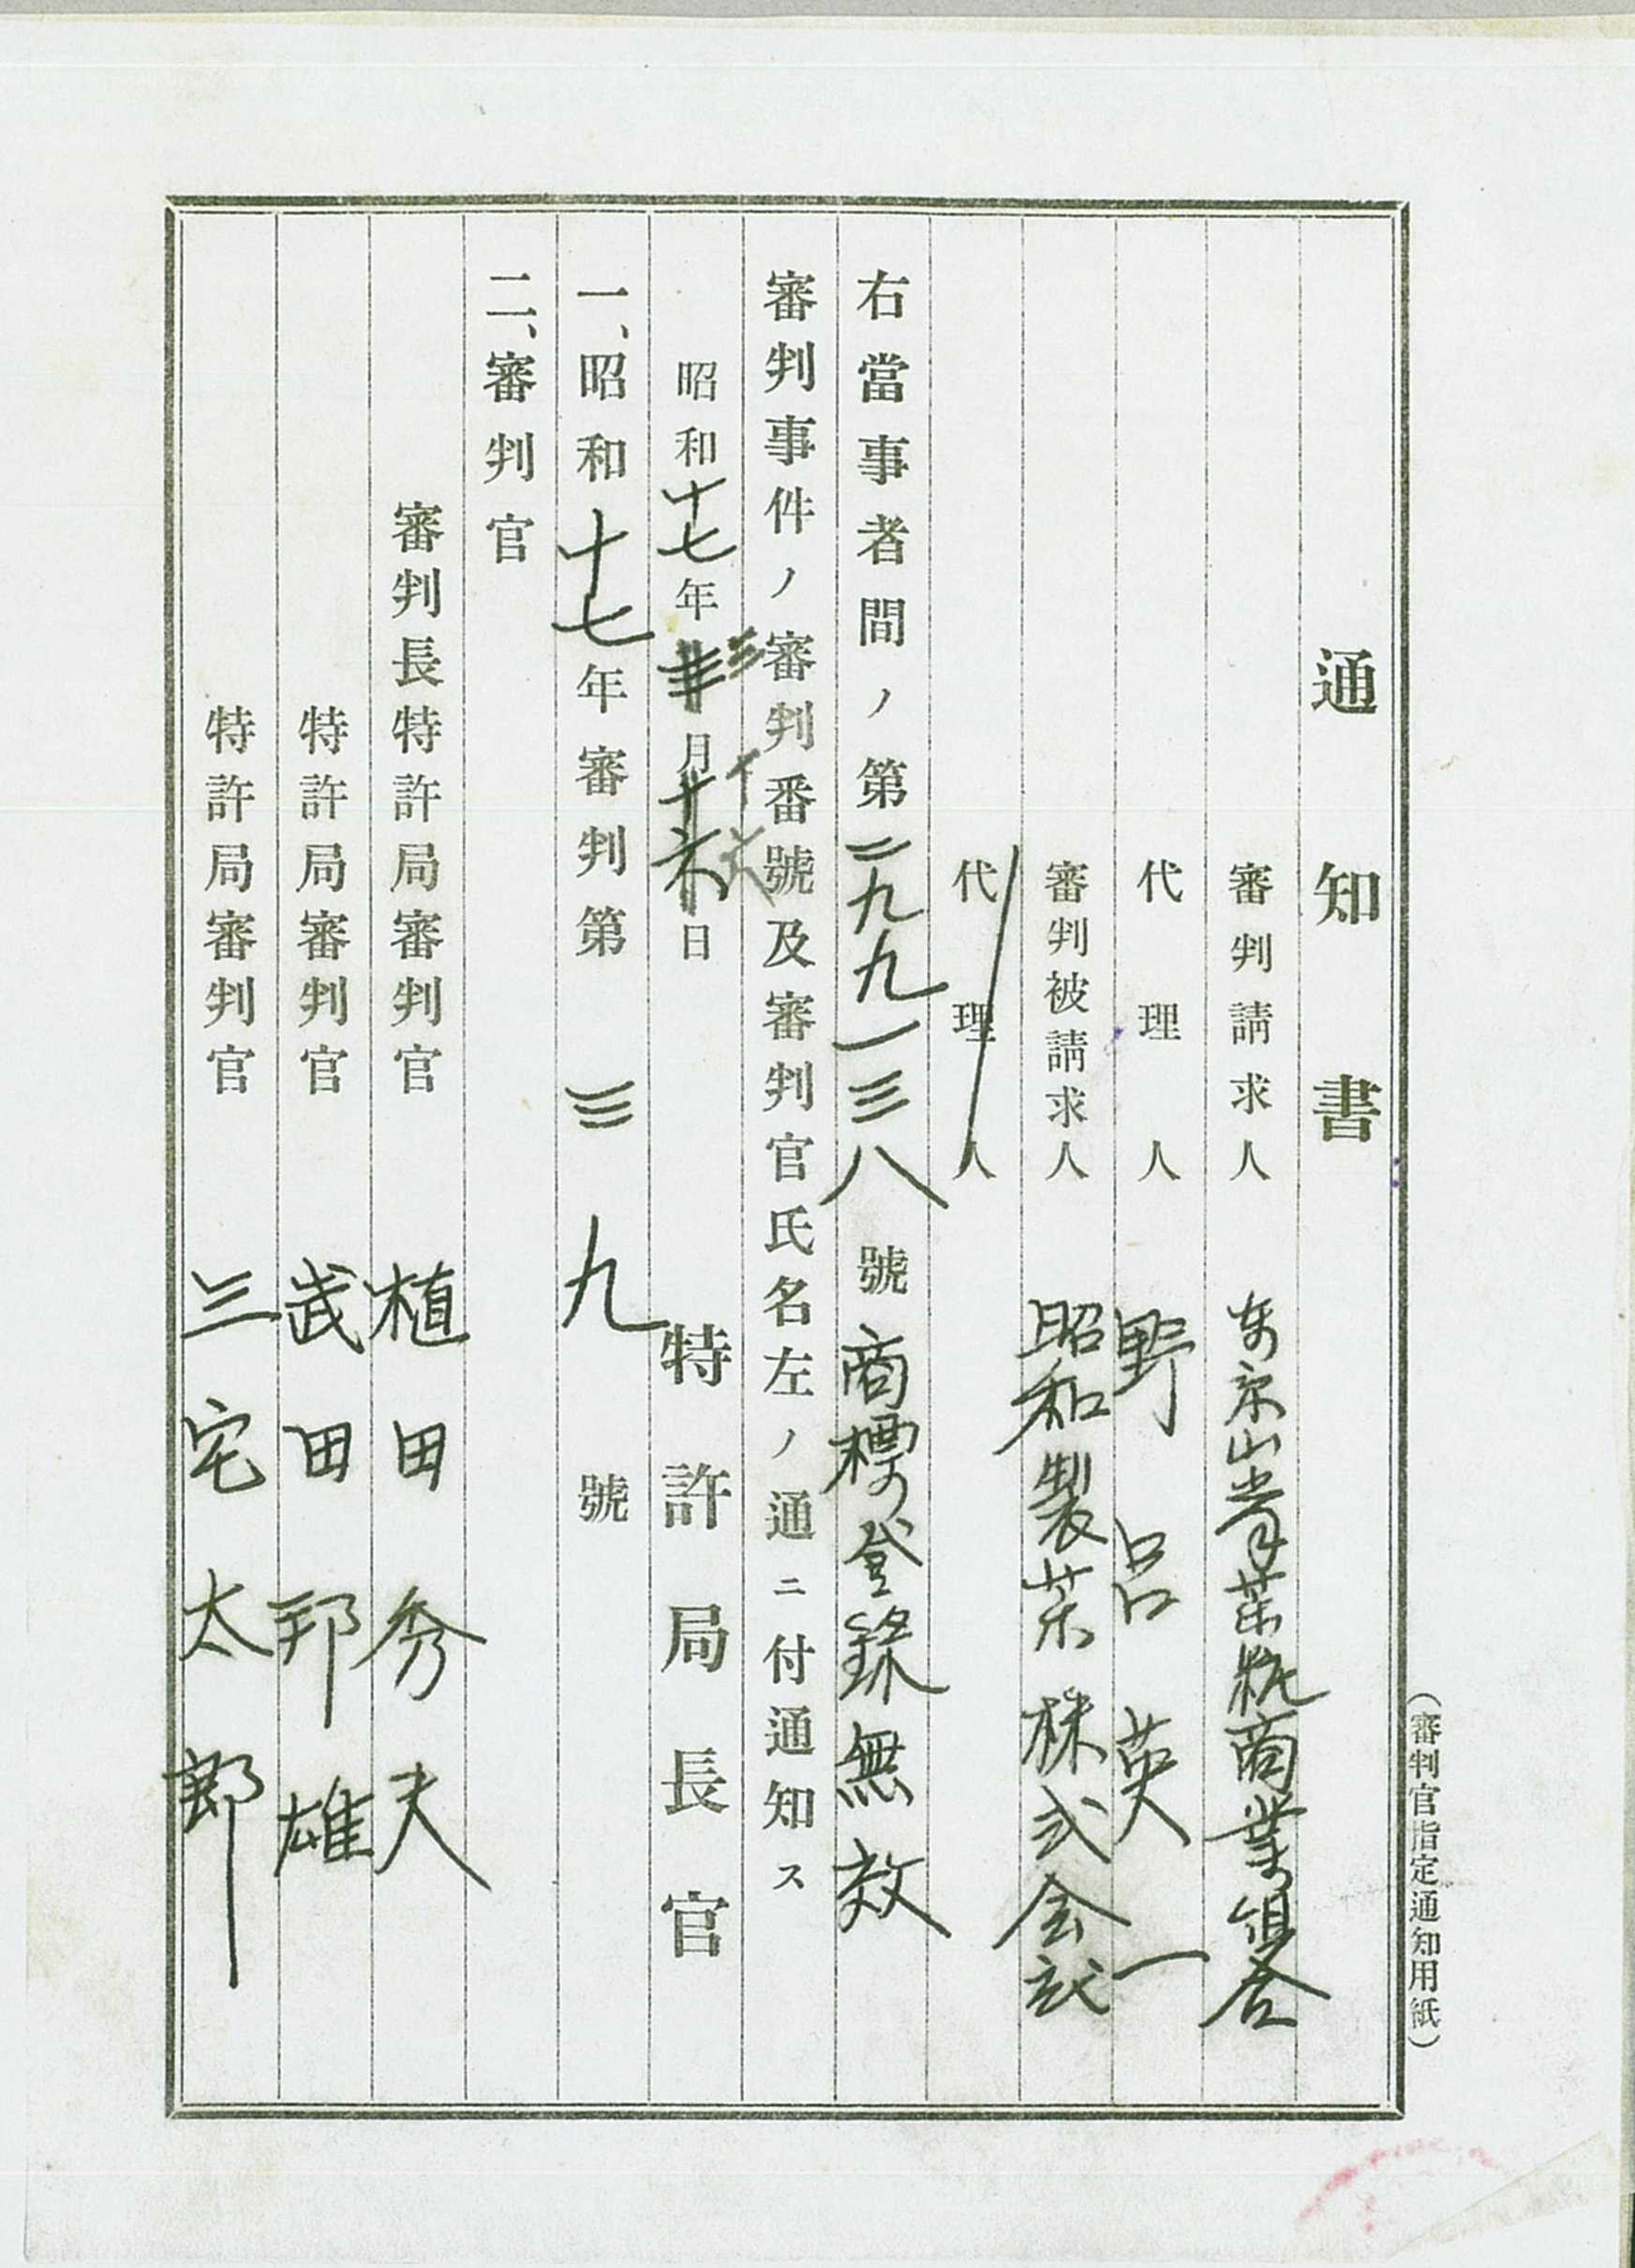 (審判官指定通知用紙)
通知書
審判請求人 東京山手茶糀商業組合
代理人 野呂英一
審判被請求人 昭和製菓株式会社
代理人
右當事者間ノ第二九九一三八號商標登錄無效
審判事件ノ審判番號及審判官氏名左ノ通ニ付通知ス
昭和十七年三月十六日 特許局長官
一、昭和十七年審判第三九號
二、審判官
審判長特許局審判官 植田秀夫
特許局審判官 武田邦雄
特許局審判官 三宅太郎